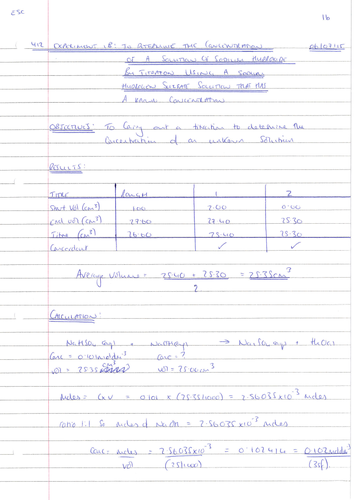 ESC
16
EXPERIMENT 1B: TO DETERMINE THE CONCENTRATION
OF A SOLUTION OF SODIUM HYDROXIDE
BY TITRATION USING A SODIUM
HYDROGEN SULFATE SOLUTION THAT HAS
A KNOWN CONCENTRATION
OBJECTIVES: To Carry out a titration to determine the
Concentration of an unknown Solution
RESULTS:
TITRE ROUGH 1 2
Start Vol (cm³) 1.00 2.00 0.00
End Vol (cm³) 27.60 27.40 25.30
Titre (cm³) 26.60 25.40 25.30
Concordant ✓ ✓
Average Volume = 25.40 + 25.30 = 25.35cm³
2
CALCULATION:
NaHSO₄(aq) + NaOH(aq) → Na₂SO₄(aq) + H₂O(l)
Conc = 0.101moldm⁻³ Conc = ?
vol = 25.35 cm³ vol = 25.00cm³
Moles = C x V = 0.101 x (25.35/1000) = 2.56035x10⁻³ moles
ratio 1:1 So moles of NaOH = 2.56035x10⁻³ moles
Conc = moles = 2.56035x10⁻³ = 0.102414 = 0.102moldm⁻³
vol (25/1000) (3sf)